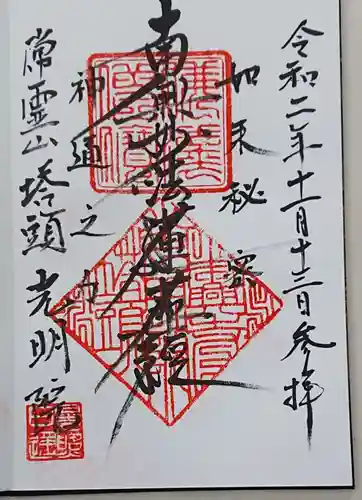 令和二年十一月十三日参拝
如来秘密
南無妙法蓮華經
神通之力
常霊山塔頭光明院